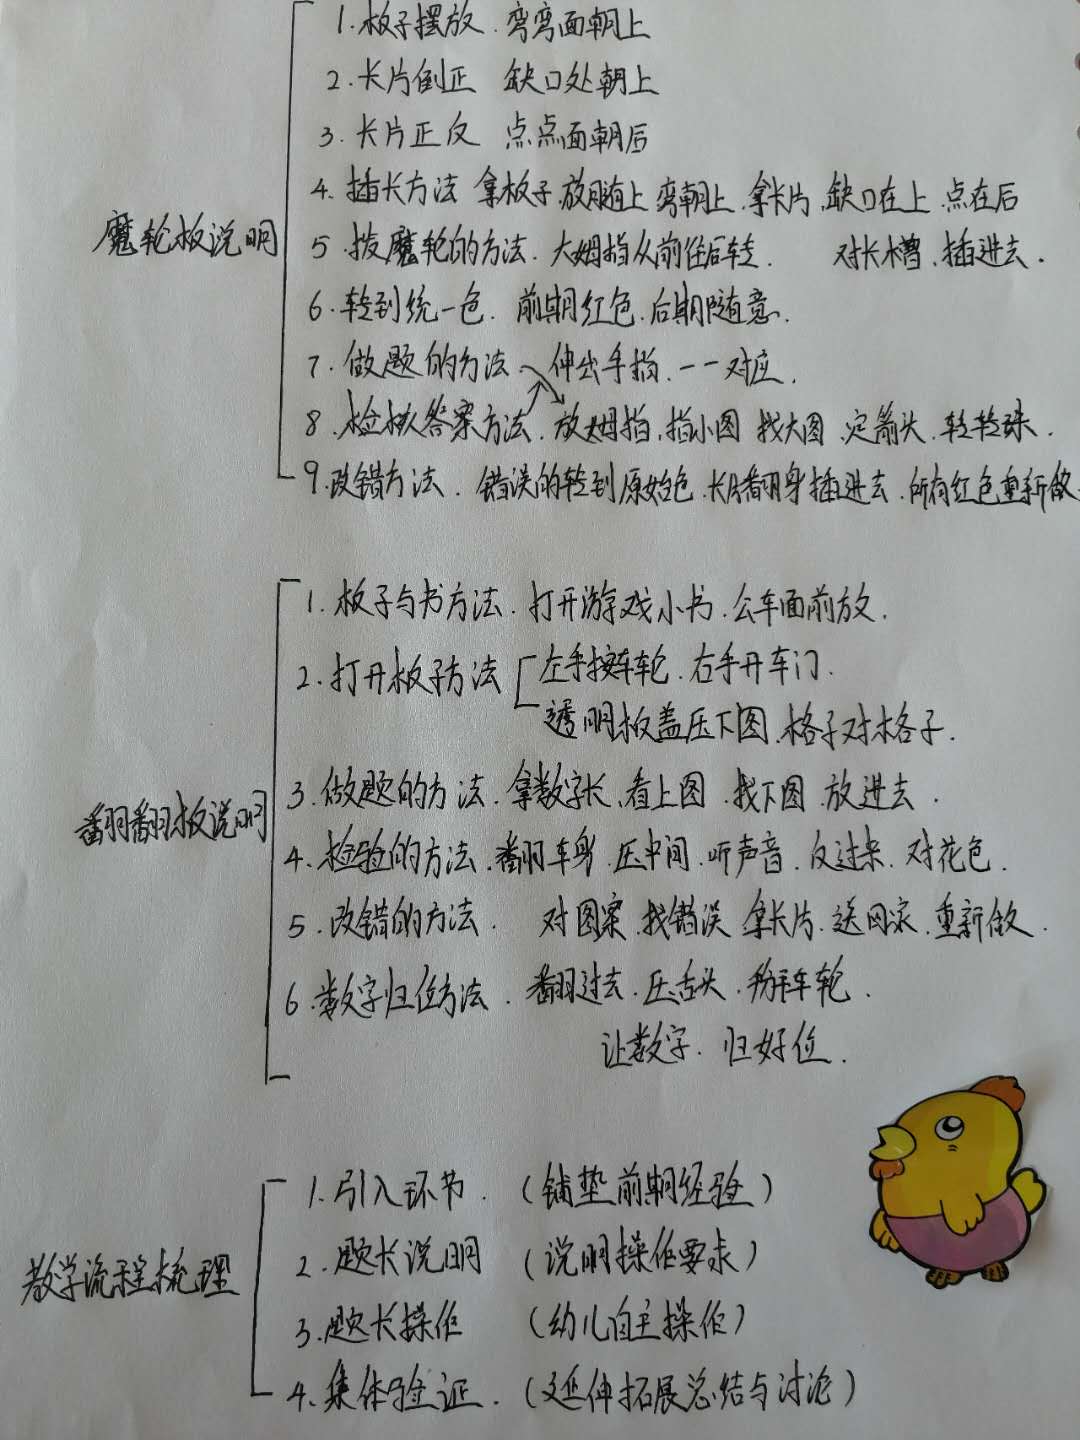 魔轮板说明
1.板子摆放.弯弯面朝上
2.卡片倒正 缺口处朝上
3.卡片正反 点点面朝后
4.插卡方法 拿板子.放腿上 弯朝上.拿卡片.缺口在上.点在后
5.拨魔轮的方法.大姆指从前往后转. 对卡槽.插进去.
6.转到统一色. 前期红色.后期随意.
7.做题的方法 伸出手指.一一对应.
8.检核答案方法.放姆指.指小图 找大图.定箭头.转轮珠.
9.改错方法.错误的转到原始色.卡片翻身插进去.所有红色重新做.
翻翻板说明
1.板子与书方法.打开游戏小书.公车面前放.
2.打开板子方法 左手按车轮.右手开车门.
透明板盖压下图.格子对格子.
3.做题的方法.拿数字卡.看上图.找下图.放进去.
4.检验的方法.翻车身.压中间.听声音.反过来.对花色.
5.改错的方法. 对图案.找错误 拿卡片.送回家.重新做.
6.数字归位方法.翻过去.压舌头.掰车轮.
让数字.归好位.
教学流程梳理
1.引入环节.(铺垫前期经验)
2.题卡说明 (说明操作要求)
3.题卡操作 (幼儿自主操作)
4.集体验证.(延伸拓展总结与讨论)